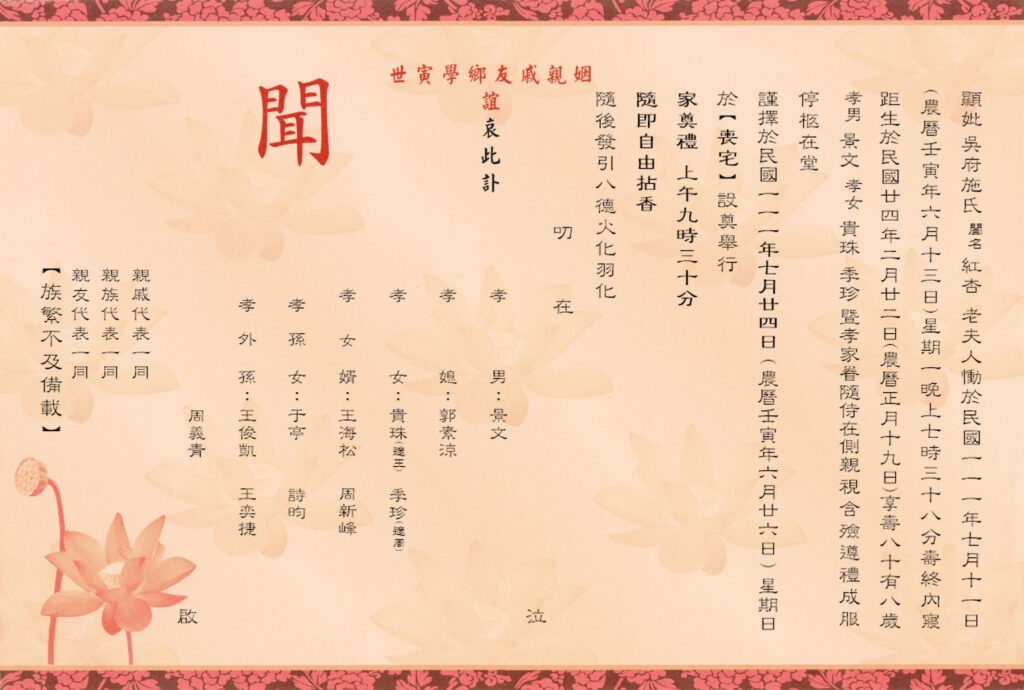 顯妣 吳府施氏 閨名 紅杏 老夫人慟於民國一一一年七月十一日
(農曆壬寅年六月十三日)星期一晚上七時三十八分壽終內寢
距生於民國廿四年二月廿二日(農曆正月十九日)享壽八十有八歲
孝男 景文 孝女 貴珠 季珍暨孝家眷隨侍在側親視含殮遵禮成服
停柩在堂
謹擇於民國一一一年七月廿四日(農曆壬寅年六月廿六日)星期日
於【喪宅】設奠舉行
家奠禮 上午九時三十分
隨即自由拈香
隨後發引八德火化羽化
叨 在
姻親戚友鄉學寅世
誼哀此訃
聞
泣
孝 男:景文
孝 媳:郭素涼
孝 女:貴珠(適王) 季珍(適周)
孝 女 婿:王海松 周新峰
孝 孫 女:于亭 詩昀
孝 外 孫:王俊凱 王奕捷
周義青
啟
親戚代表一同
親族代表一同
親友代表一同
【族繁不及備載】